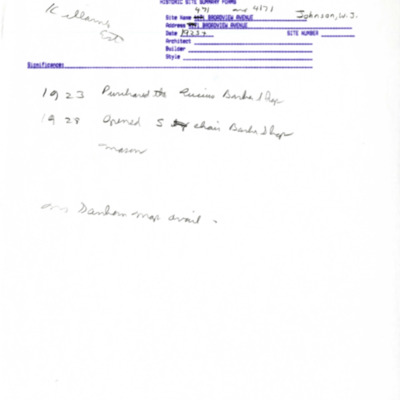 HISTORIC SITE SUMMARY FORMS
Killam's Est
471 and 4171
Johnson, W.J.
Site Name BROADVIEW AVENUE
Address BROADVIEW AVENUE
Date 1923 SITE NUMBER
Architect
Builder
Style
Significance:
1923 Purchased the Barber Shop
1928 Opened 5 chair Barber Shop
mason
Sanborn map avail -